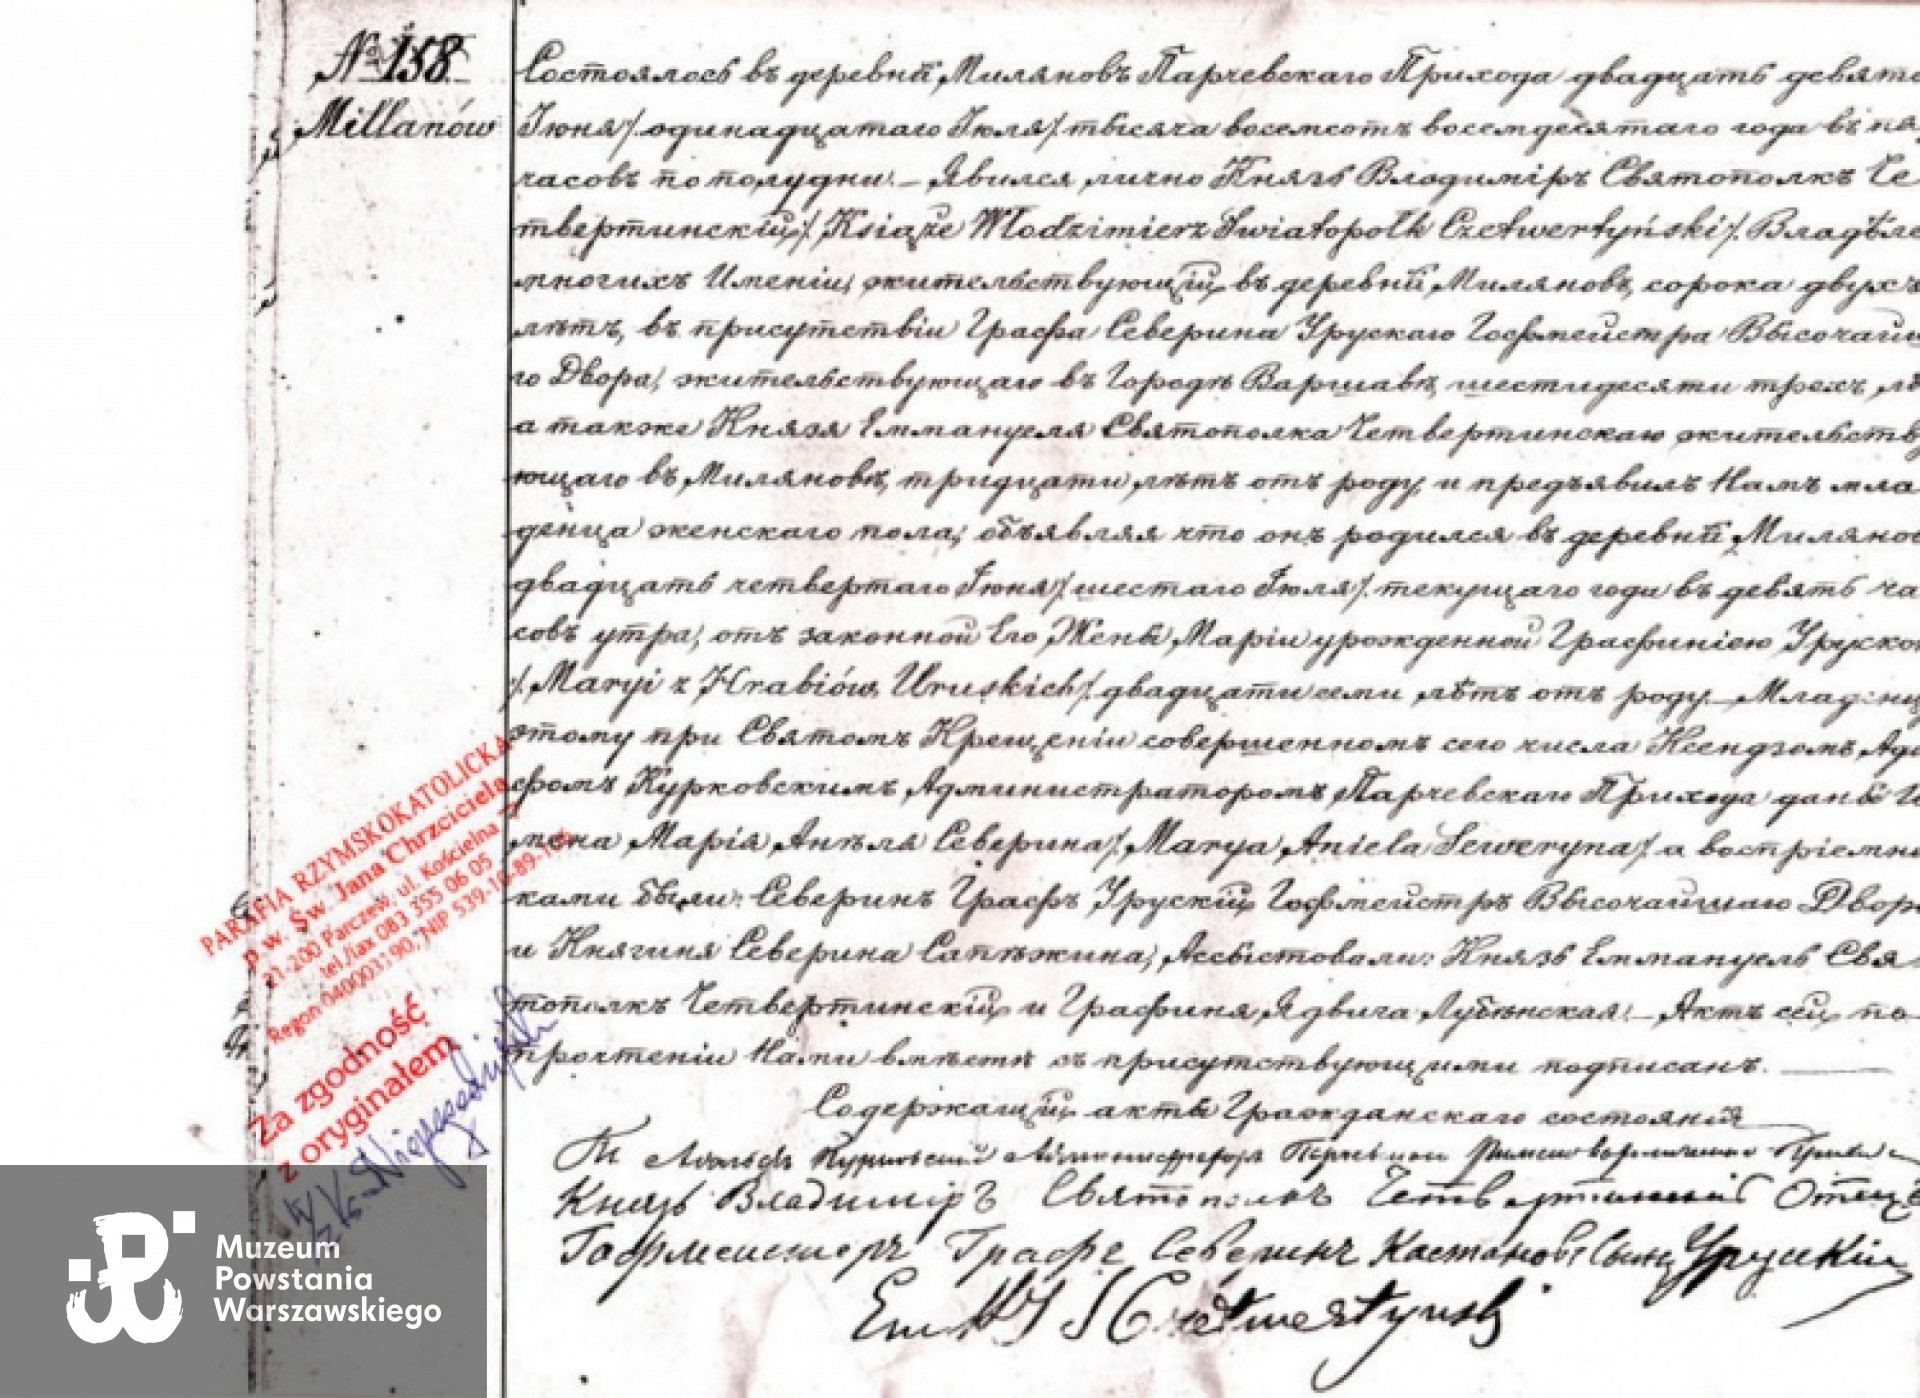 № 158
Millanów
Состоялось въ деревнѣ Миляновъ Парчевскаго Прихода двадцать девято
Іюня /. одинадцатаго Іюля /. тысяча восемсотъ восемдесятаго года въ пя
часовъ по полудни. – Явился лично Князь Владиміръ Святополкъ Че
твертинскій /. Książe Włodzimierz Swiatopołk Czetwertyński /. Владѣле
многихъ Именіи, жительствующій въ деревнѣ Миляновъ, сорока двухъ
лѣтъ, въ присутствіи Графа Северина Урускаго Гофмейстра Высочайш
го Двора, жительствующаго въ Городѣ Варшавѣ, шестидесяти трехъ лѣ
а также Князя Еммануеля Святополка Четвертинскаго жительству
ющаго въ Миляновѣ, тридцати лѣтъ отъ роду, и предъявилъ Намъ мла
денца женскаго пола, объявляя что онъ родился въ деревнѣ Милянов
двадцать четвертаго Іюня /. шестаго Іюля /. текущаго года въ девять ча
совъ утра, отъ законной Его Жены Маріи урожденной Графиніею Уруско
/. Maryi z Hrabiów Uruskich /. двадцати семи лѣтъ отъ роду. – Младенцу
этому при Святомъ Крещеніи совершенномъ сего числа Ксендзомъ Адо
фомъ Курковскимъ Администраторомъ Парчевскаго Прихода даны И
мена Марія Анѣля Северина /. Marya Aniela Seweryna /. а воспріемни
ками были: Северинъ Графъ Урускій Гофмейстръ Высочайшаго Двора
и Княгиня Северина Сапѣжина, Ассыстовали: Князь Еммануель Свя
тополкъ Четвертинскій и Графиня Ядвига Лубѣнская. – Актъ сей по
прочтеніи Нами вмѣстѣ съ присутствующими подписанъ. ——
Содержащій акты Гражданскаго состоянія
Князь Владиміръ Святополкъ Четвертинскій Отецъ
Гофмейстеръ Графъ Северинъ Каетановъ Сынъ Урускій
Em S Czetwertyński
PARAFIA RZYMSKOKATOLICKA
p.w. Św. Jana Chrzciciela
21-200 Parczew, ul. Kościelna
tel./fax 083 355 06 05
Regon 040003190, NIP 539-10-89-1
Za zgodność
z oryginałem
Muzeum
Powstania
Warszawskiego